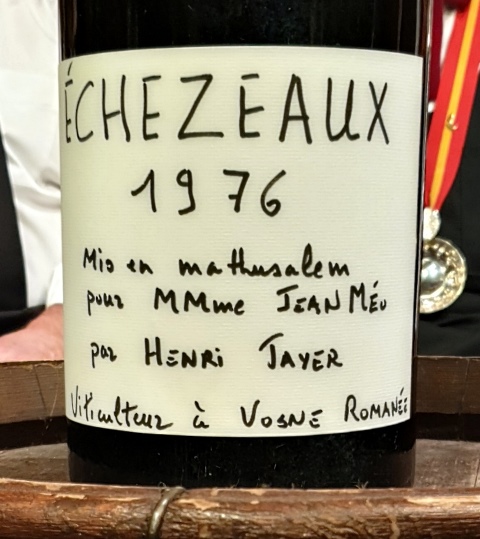 ÉCHEZEAUX
1976
Mis en mathusalem
pour MMme JEAN MÉO
par HENRI JAYER
Viticulteur à VOSNE ROMANÉE